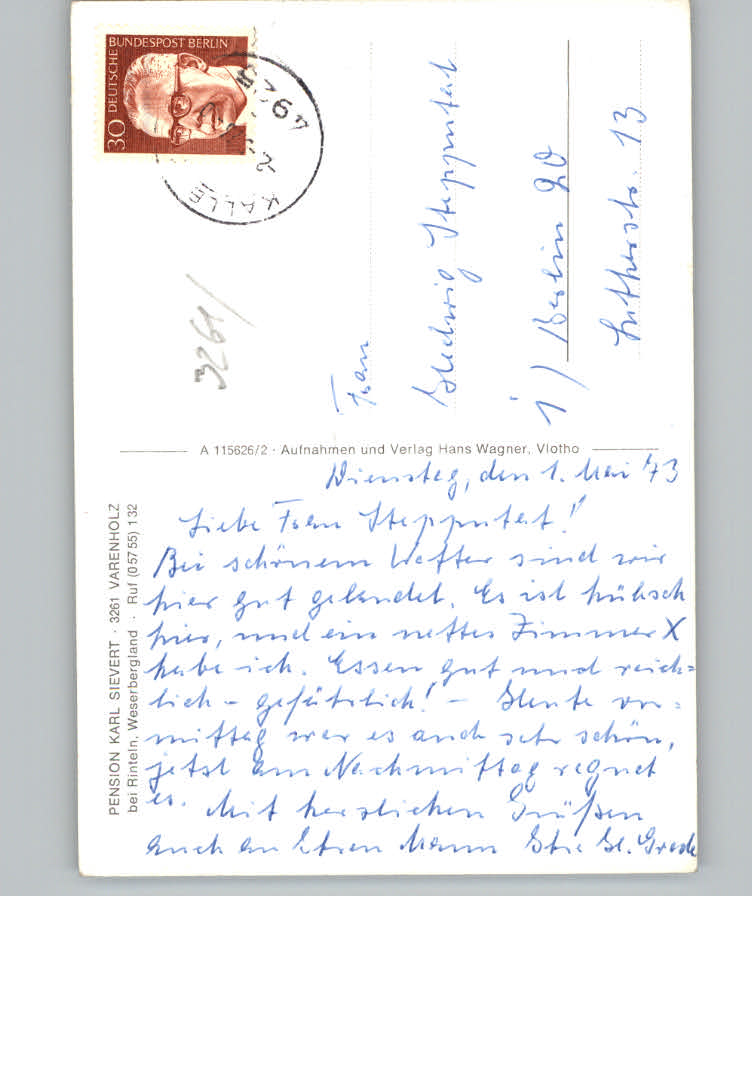 DEUTSCHE BUNDESPOST BERLIN
30
4925
KALLE
3261/
Frau
Hedwig Stepputat
1) Berlin 20
Lutherstr. 13
A 115626/2 · Aufnahmen und Verlag Hans Wagner, Vlotho
PENSION KARL SIEVERT · 3261 VARENHOLZ
bei Rinteln, Weserbergland · Ruf (05755) 132
Dienstag, den 1. Mai 73
Liebe Frau Stepputat!
Bei schönem Wetter sind wir
hier gut gelandet. Es ist hübsch
hier, und ein nettes Zimmer X
habe ich. Essen gut und reich=
lich - gefährlich! - Heute vor=
mittag war es auch sehr schön,
jetzt am Nachmittag regnet
es. Mit herzlichen Grüßen
auch an Ihren Mann Ihre